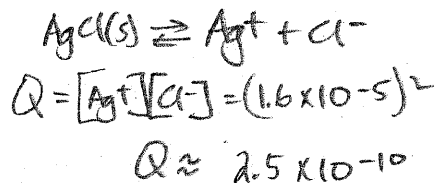 AgCl(s) ⇄ Ag+ + Cl-
Q = [Ag+][Cl-] = (1.6 x 10-5)²
Q ≈ 2.5 x 10-10